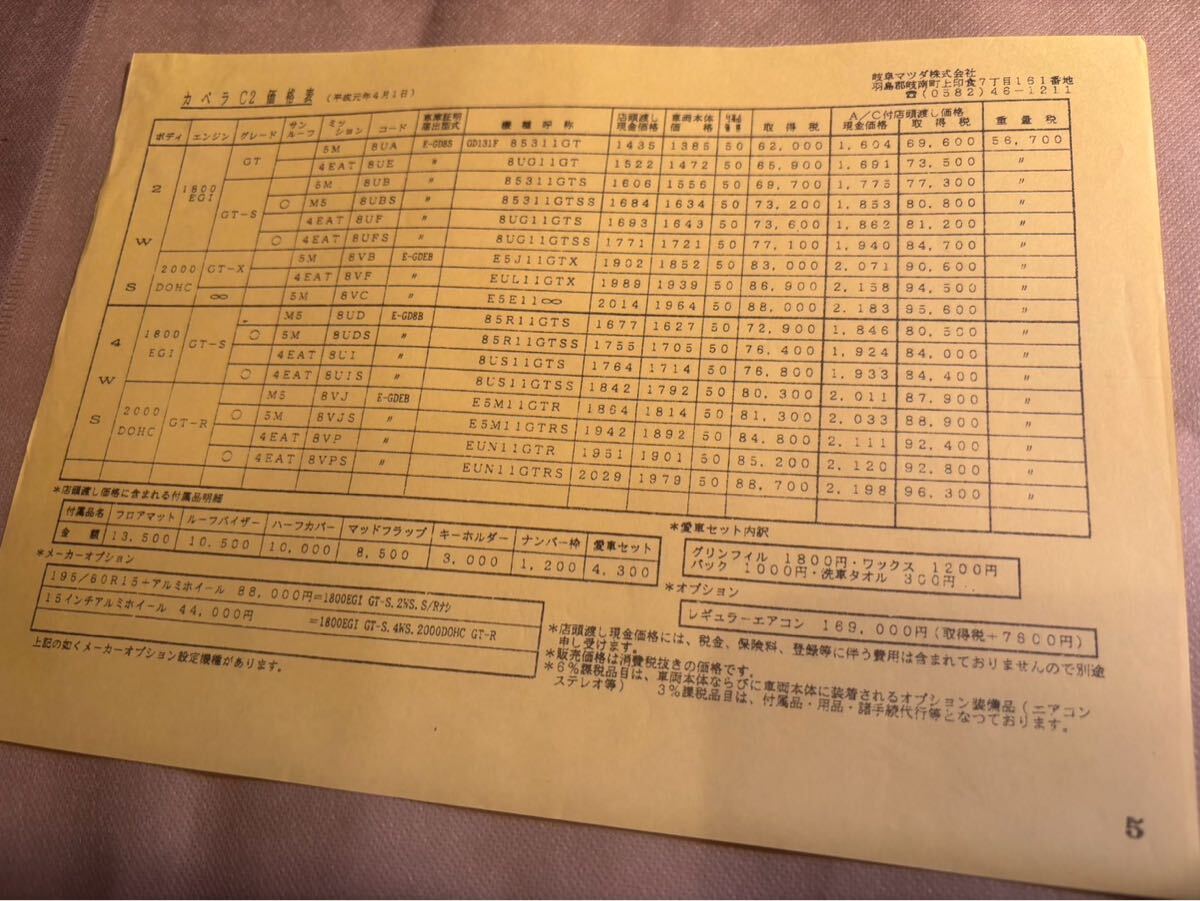 カペラ C2 価格表 (平成元年4月1日)
岐阜マツダ株式会社
羽島郡岐南町上印食7丁目161番地
☎(0582)46-1211
ボディ エンジン グレード サンルーフ ミッション コード 車庫証明届出型式 機種呼称 店頭渡し現金価格 車両本体価格 取得税 A/C付店頭渡し価格 現金価格 取得税 重量税
2WS 1800EGI GT 5M 8UA E-GD8S GD131F 85311GT 1435 1385 50 62,000 1,604 69,600 56,700
4EAT 8UE 〃 8UG11GT 1522 1472 50 65,900 1,691 73,500 〃
GT-S 5M 8UB 〃 85311GTS 1606 1556 50 69,700 1,775 77,300 〃
○ M5 8UBS 〃 85311GTSS 1684 1634 50 73,200 1,853 80,800 〃
4EAT 8UF 〃 8UG11GTS 1693 1643 50 73,600 1,862 81,200 〃
○ 4EAT 8UFS 〃 8UG11GTSS 1771 1721 50 77,100 1,940 84,700 〃
2000DOHC GT-X 5M 8VB E-GDEB E5J11GTX 1902 1852 50 83,000 2,071 90,600 〃
4EAT 8VF 〃 EUL11GTX 1989 1939 50 86,900 2,158 94,500 〃
∞ 5M 8VC 〃 E5E11∞ 2014 1964 50 88,000 2,183 95,600 〃
4WS 1800EGI GT-S M5 8UD E-GD8B 85R11GTS 1677 1627 50 72,900 1,846 80,500 〃
○ 5M 8UDS 〃 85R11GTSS 1755 1705 50 76,400 1,924 84,000 〃
4EAT 8UI 〃 8US11GTS 1764 1714 50 76,800 1,933 84,400 〃
○ 4EAT 8UIS 〃 8US11GTSS 1842 1792 50 80,300 2,011 87,900 〃
2000DOHC GT-R M5 8VJ E-GDEB E5M11GTR 1864 1814 50 81,300 2,033 88,900 〃
○ 5M 8VJS 〃 E5M11GTRS 1942 1892 50 84,800 2,111 92,400 〃
4EAT 8VP 〃 EUN11GTR 1951 1901 50 85,200 2,120 92,800 〃
○ 4EAT 8VPS 〃 EUN11GTRS 2029 1979 50 88,700 2,198 96,300 〃
*店頭渡し価格に含まれる付属品明細
付属品名 フロアマット ルーフバイザー ハーフカバー マッドフラップ キーホルダー ナンバー枠 愛車セット
金額 13,500 10,500 10,000 8,500 3,000 1,200 4,300
*メーカーオプション
195/60R15+アルミホイール 88,000円=1800EGI GT-S.2WS.S/Rナシ
15インチアルミホイール 44,000円 =1800EGI GT-S.4WS.2000DOHC GT-R
上記の如くメーカーオプション設定機種があります。
*愛車セット内訳
グリンフィル 1800円・ワックス 1200円
バック 1000円・洗車タオル 300円
*オプション
レギュラーエアコン 169,000円(取得税+7600円)
*店頭渡し現金価格には、税金、保険料、登録等に伴う費用は含まれておりませんので別途
申し受けます。
*販売価格は消費税抜きの価格です。
*6%課税品目は、車両本体ならびに車両本体に装着されるオプション装備品(エアコン
ステレオ等) 3%課税品目は、付属品・用品・諸手続代行等となつております。
5